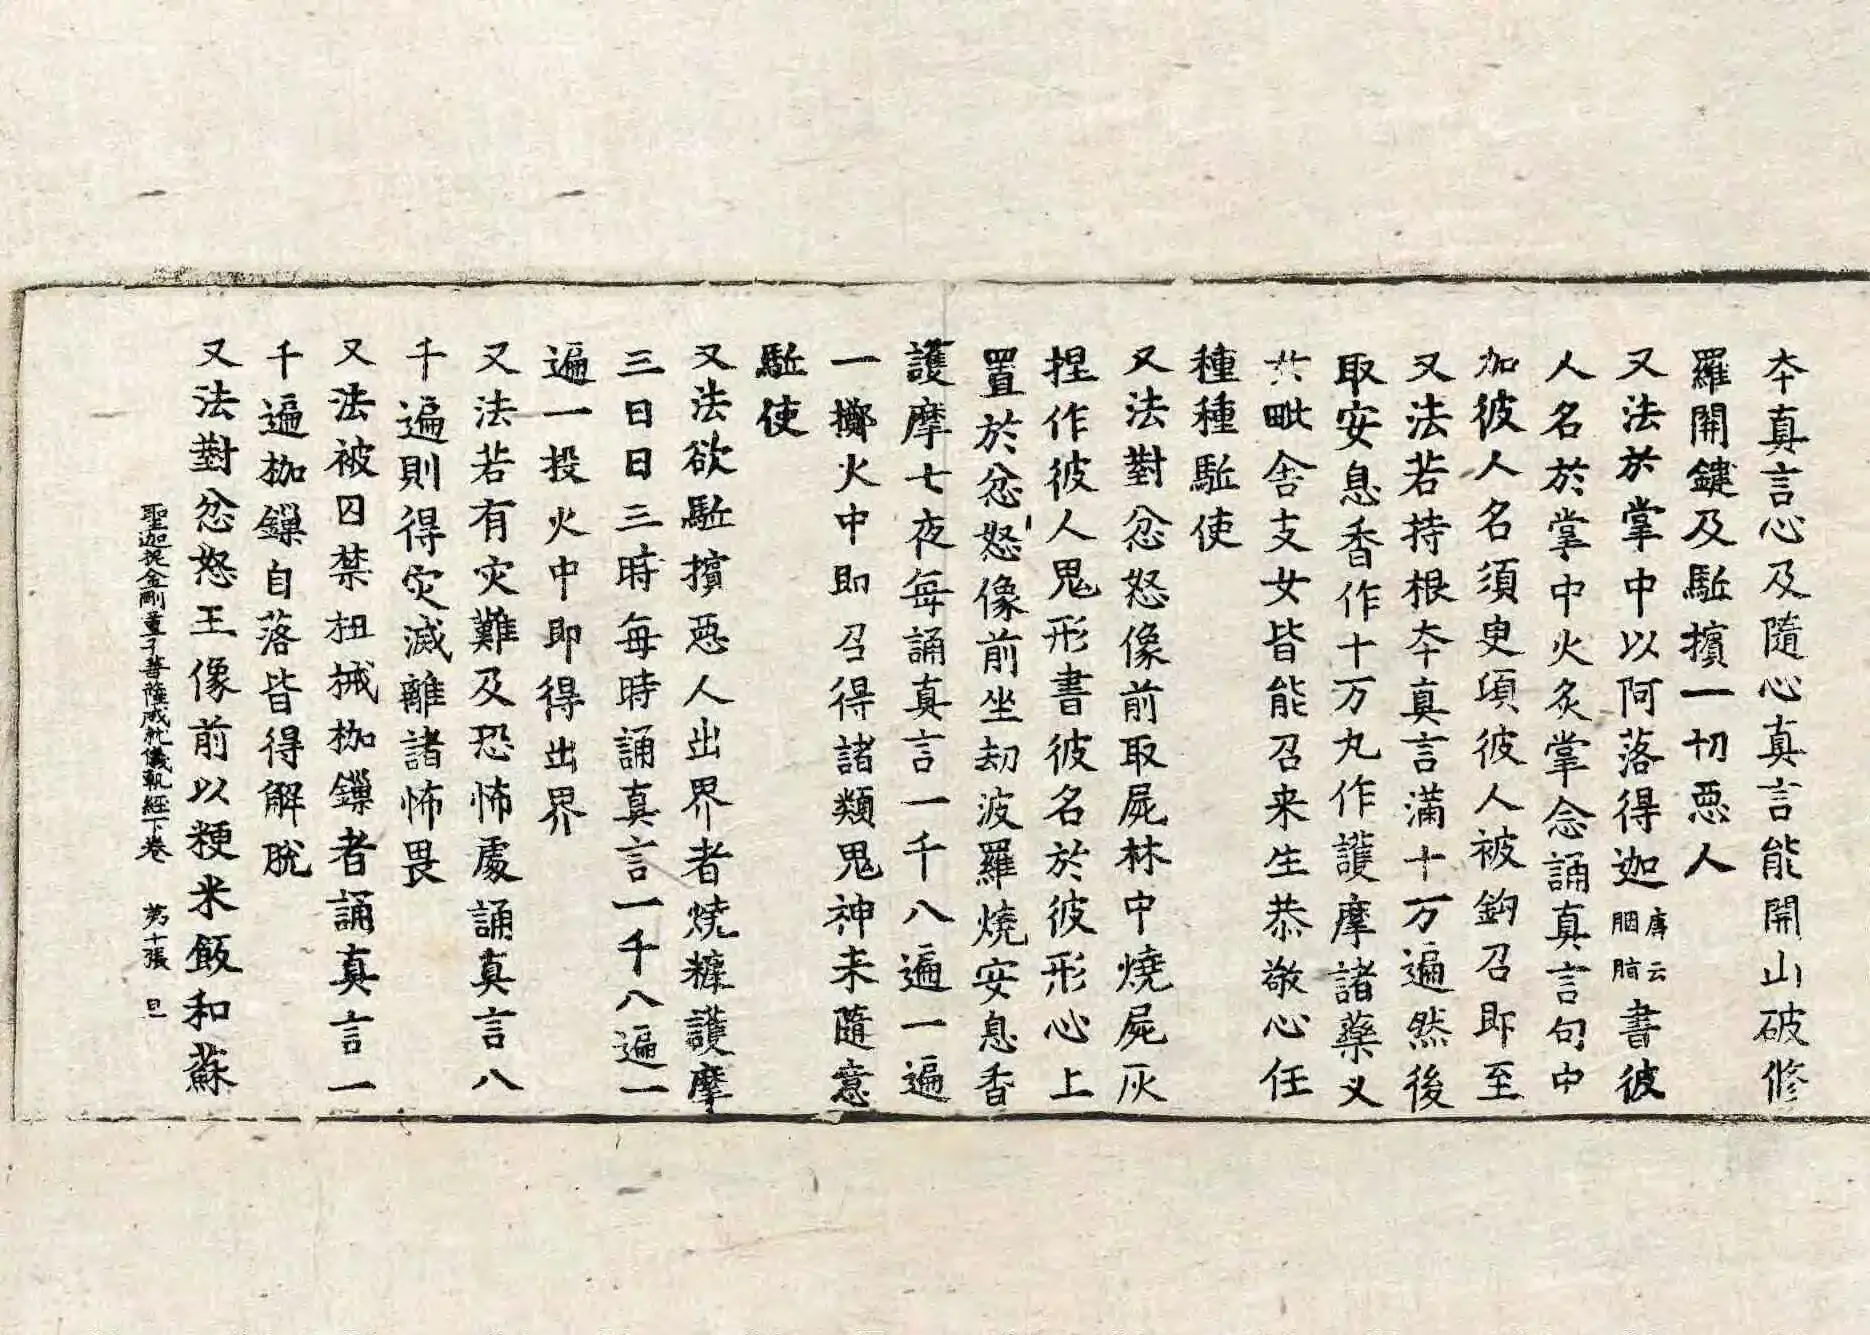 夲真言心及隨心真言能開山破修
羅開鍵及駈擯一切惡人
又法於掌中以阿落得迦唐云胭脂書彼
人名於掌中火炙掌念誦真言句中
加彼人名須臾頃彼人被鈎召即至
又法若持根夲真言滿十万遍然後
取安息香作十万丸作護摩諸藥叉
共毗舍支女皆能召来生恭敬心任
種種駈使
又法對忿怒像前取屍林中燒屍灰
捏作彼人鬼形書彼名於彼形心上
置於忿怒像前坐劫波羅燒安息香
護摩七夜每誦真言一千八遍一遍
一擲火中即召得諸類鬼神来隨意
駈使
又法欲駈擯惡人出界者燒糠護摩
三日日三時每時誦真言一千八遍一
遍一投火中即得出界
又法若有灾難及恐怖處誦真言八
千遍則得灾滅離諸怖畏
又法被囚禁杻械枷鏁者誦真言一
千遍枷鏁自落皆得解脫
聖迦抳金剛童子菩薩成就儀軌經下卷 苐十張 旦
又法對忿怒王像前以粳米飯和蘇